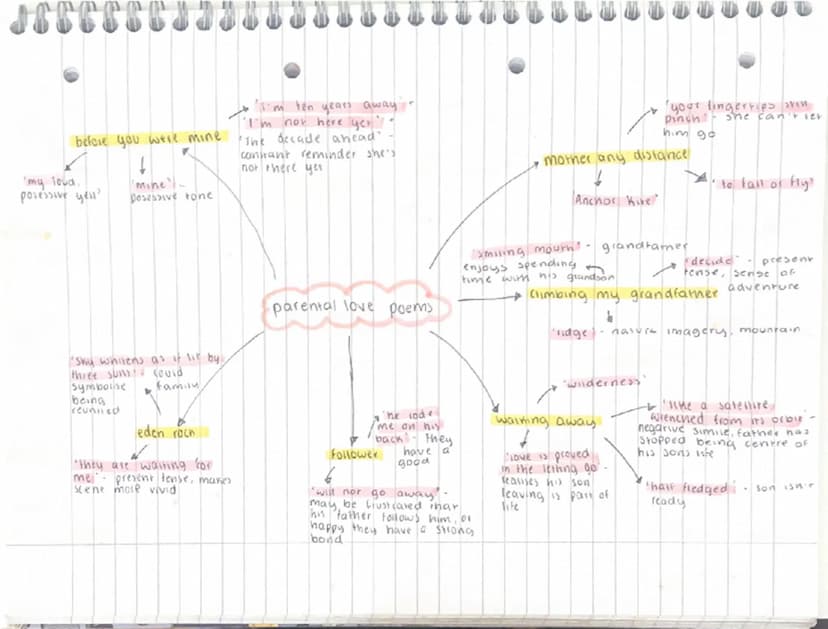 parental love poems
before you were mine
'I'm ten years away' -
'I'm not here yet' -
'The decade ahead' -
constant reminder she's
not there yet
'my loud,
posessive yell'
'mine' -
posessive tone
mother any distance
'your fingertips still
pinch' - she can't let
him go
'Anchor Kite'
'to fall or fly'
climbing my grandfather
'smiling mouth' - grandfather
enjoys spending
time with his grandson
'decide' - present
tense, sense of
adventure
'ridge' - nature imagery, mountain
walking away
'wilderness'
'like a satellite
wrenched from its orbit' -
negative simile, father has
stopped being centre of
his sons life
'love is proved
in the letting go' -
realises his son
leaving is part of
life
'half fledged' - son isn't
ready
follower
'he rode
me on his
back' - they
have a
good
'will not go away' -
may be frustrated that
his father follows him, or
happy they have a strong
bond
eden rock
'sky whitens as if lit by
three suns' - could
symbolise family
being
reunited
'they are waiting for
me' - present tense, makes
scene more vivid